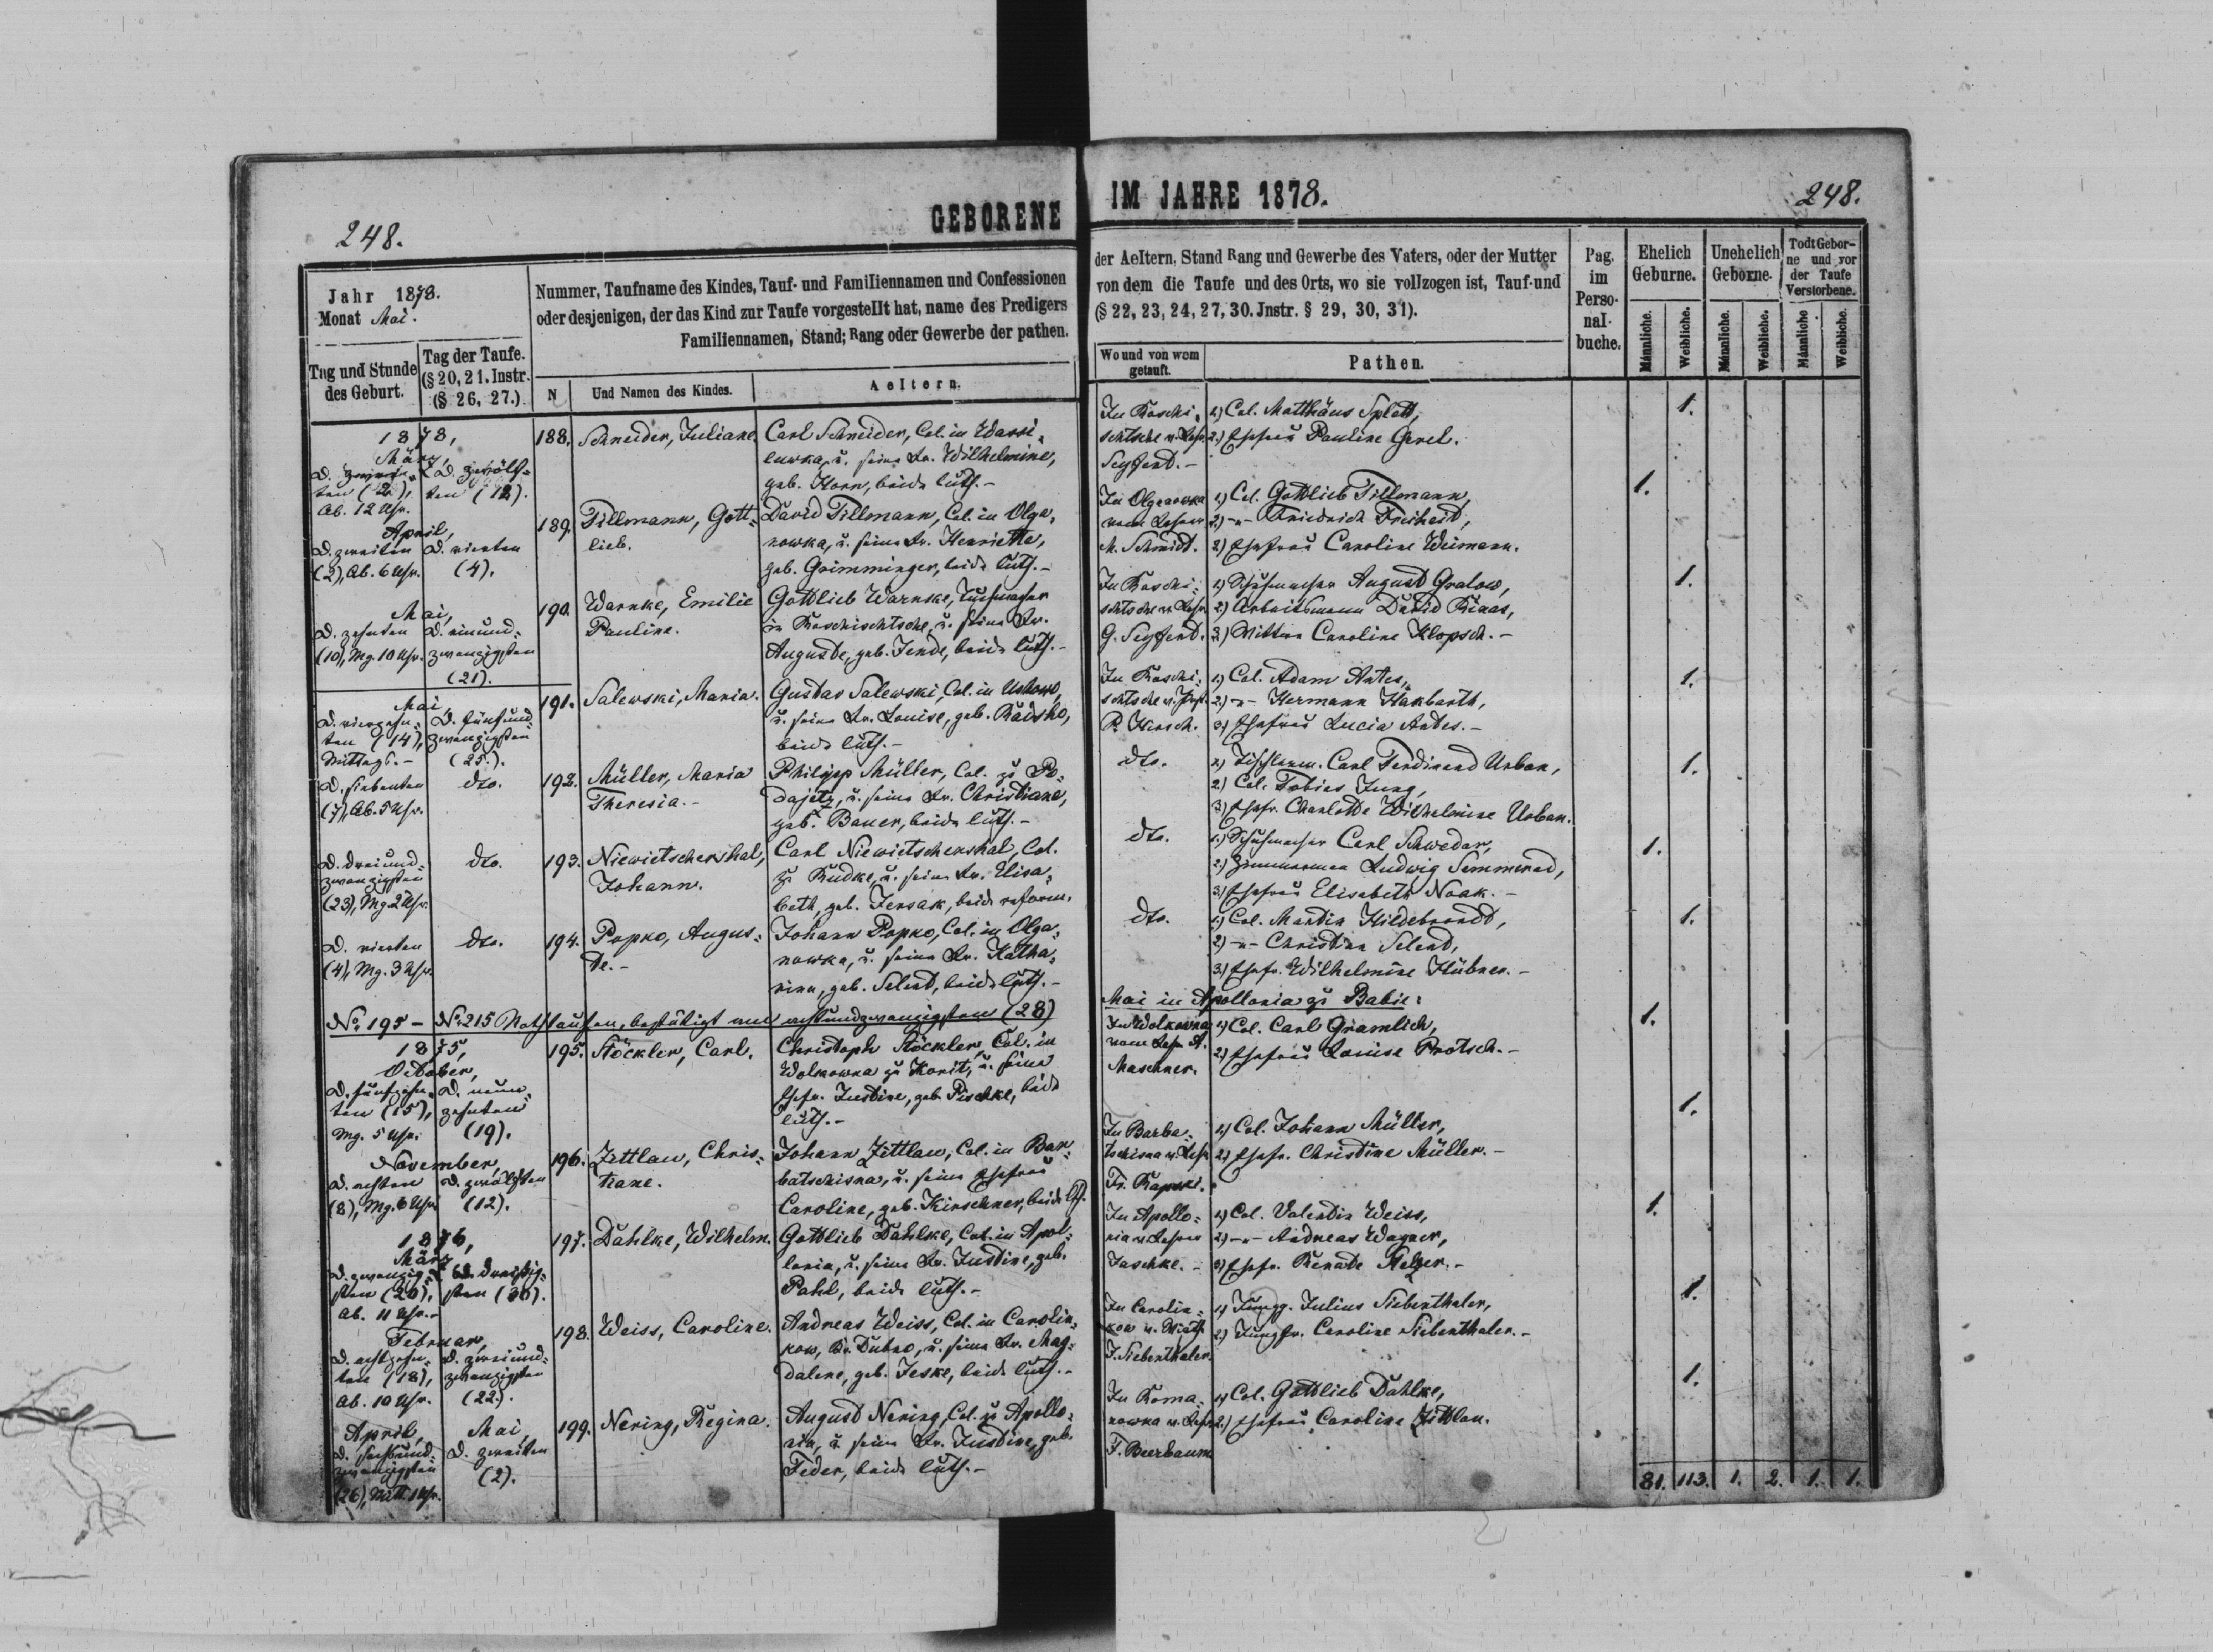 248.
GEBORENE
IM JAHRE 1878.
248.
Jahr 1878.
Monat Mai.
Tag und Stunde des Geburt.
Tag der Taufe.
(§ 20, 21. Instr.
(§ 26, 27.)
Nummer, Taufname des Kindes, Tauf- und Familiennamen und Confessionen
oder desjenigen, der das Kind zur Taufe vorgestellt hat, name des Predigers
Familiennamen, Stand; Rang oder Gewerbe der pathen.
N
Und Namen des Kindes.
Aeltern.
der Aeltern, Stand Rang und Gewerbe des Vaters, oder der Mutter
von dem die Taufe und des Orts, wo sie vollzogen ist, Tauf-und
(§ 22, 23, 24, 27, 30. Jnstr. § 29, 30, 31).
Wo und von wem
getauft.
Pathen.
Pag.
im
Perso-
nal-
buche.
Ehelich
Geburne.
Unehelich
Geborne.
Todt Gebor-
ne und vor
der Taufe
Verstorbene.
Männliche.
Weibliche.
Männliche.
Weibliche.
Männliche
Weibliche.
1878,
März,
D. zweiten (2), Ab. 12 Uhr.
D. zwölf-
ten (12).
188.
Schneider, Juliane.
Carl Schneider, Col. in Wassi-
luwka, u. seine Fr. Wilhelmine,
geb. Horn, beide luth.-
In Roschi-
schtsche v. Lehr.
Seyferd.-
1) Col. Matthäus Splett,
2) Ehefrau Pauline Gerel.
1.
April,
D. zweiten
(2), Ab. 6 Uhr.
D. vierten
(4).
189.
Tillmann, Gott-
lieb.
David Tillmann, Col. in Olga-
nowka, u. seine Fr. Henriette,
geb. Grimminger, beide luth.-
In Olganowka
vom Lehrer
M. Schmidt.
1) Col. Gottlieb Tillmann,
2) -"- Friedrich Freiheit,
2) Ehefrau Caroline Weimann.
1.
Mai,
D. zehnten
(10), Mg. 10 Uhr.
D. einund-
zwanzigsten
(21).
190.
Warnke, Emilie
Pauline.
Gottlieb Warnke, Tuchmacher
in Roschischtsche, u. seine Fr.
Auguste, geb. Jende, beide luth.-
In Roschi-
schtsche v. Lehr.
G. Seyferd.
1) Schuhmacher August Gralow,
2) Arbeitsmann David Rinas,
3) Wittwe Caroline Klopsch.-
1.
Mai,
D. vierzehn-
ten (14),
Mittags.-
D. fünfund-
zwanzigsten
(25.).
191.
Salewski, Maria.
Gustav Salewski, Col. in Ustowo,
u. seine Fr. Louise, geb. Radsko,
beide luth.-
In Roschi-
schtsche v. Past.
P. Kersch.
1) Col. Adam Antes,
2) -"- Hermann Hakbarth,
3) Ehefrau Lucia Antes.-
1.
D. siebenten
(7), Ab. 5 Uhr.
dto.
192.
Müller, Maria
Theresia.-
Philipp Müller, Col. zu Po-
dajetz, u. seine Fr. Christiane,
geb. Bauer, beide luth.-
dto.
1) Tischlerm. Carl Ferdinand Urban,
2) Col. Tobias Jung,
3) Ehefr. Charlotte Wilhelmine Urban.
1.
D. dreiund-
zwanzigsten
(23), Mg. 2 Uhr.
dto.
193.
Niewietschershal,
Johann.
Carl Niewietschershal, Col.
zu Rudke, u. seine Fr. Elisa-
beth, geb. Jersak, beide reform.
dto.
1) Schuhmacher Carl Schwedar,
2) Zimmermann Ludwig Semmerad,
3) Ehefrau Elisabeth Noak.-
1.
D. vierten
(4), Mg. 3 Uhr.
dto.
194.
Popko, Augus-
te.-
Johann Popko, Col. in Olga-
nowka, u. seine Fr. Katha-
rina, geb. Selent, beide luth.-
dto.
1) Col. Martin Hildebrandt,
2) -"- Christian Selent,
3) Ehefr. Wilhelmine Hübner.-
1.
No. 195 - No. 215 Nothtaufen, bestätigt am achtundzwanzigsten (28)
Mai in Apollonia zu Babie:
1875,
October,
D. fünfzehn-
ten (15),
Mg. 5 Uhr.
D. neun-
zehnten
(19).
195.
Stöckler, Carl.
Christoph Stöckler, Col. in
Wolkowna zu Korit, u. seine
Ehefr. Justine, geb. Pischke, beide
luth.-
In Wolkowna
vom Lehr. A.
Maschner.
1) Col. Carl Gramlich,
2) Ehefrau Louise Protsch.-
1.
November,
D. achten
(8), Mg. 6 Uhr.
D. zwölften
(12).
196.
Zittlau, Chris-
tiane.
Johann Zittlau, Col. in Bar-
batschisna, u. seine Ehefrau
Caroline, geb. Kirschner, beide lth.
In Barba-
tschisna v. Lehr.
Fr. Rapski.
1) Col. Johann Müller,
2) Ehefr. Christine Müller.-
1.
1876,
März
D. zwanzig-
sten (20),
Ab. 11 Uhr.-
D. dreißig-
sten (30).
197.
Dahlke, Wilhelm.
Gottlieb Dahlke, Col. in Apol-
lonia, u. seine Fr. Justine, geb.
Pahl, beide luth.-
In Apollo-
nia v. Lehrer
Jaschke.-
1) Col. Valentin Weiss,
2) -"- Andreas Wagner,
3) Ehefr. Renate Stelzer.-
1.
Februar,
D. achtzehn-
ten (18),
Ab. 10 Uhr.
D. zweiund-
zwanzigsten
(22).
198.
Weiss, Caroline.
Andreas Weiss, Col. in Carolin-
kow, Kr. Dubno, u. seine Fr. Mag-
dalene, geb. Jeske, beide luth.-
In Carolin-
kow
J. Siebenthaler.
1) Jungg. Julius Siebenthaler,
2) Jungfr. Caroline Siebenthaler.-
1.
April,
D. sechsund-
zwanzigsten
(26), Mitt. 1 Uhr.
Mai,
D. zweiten
(2).
199.
Nering, Regina.
August Nering, Col. zu Apollo-
nia, u. seine Fr. Justine, geb.
Feder, beide luth.-
In Roma-
nowka v. Lehr.
F. Beerbaum
1) Col. Gottlieb Dahlke,
2) Ehefrau Caroline Zittlau.
1.
81. 113. 1. 2. 1. 1.